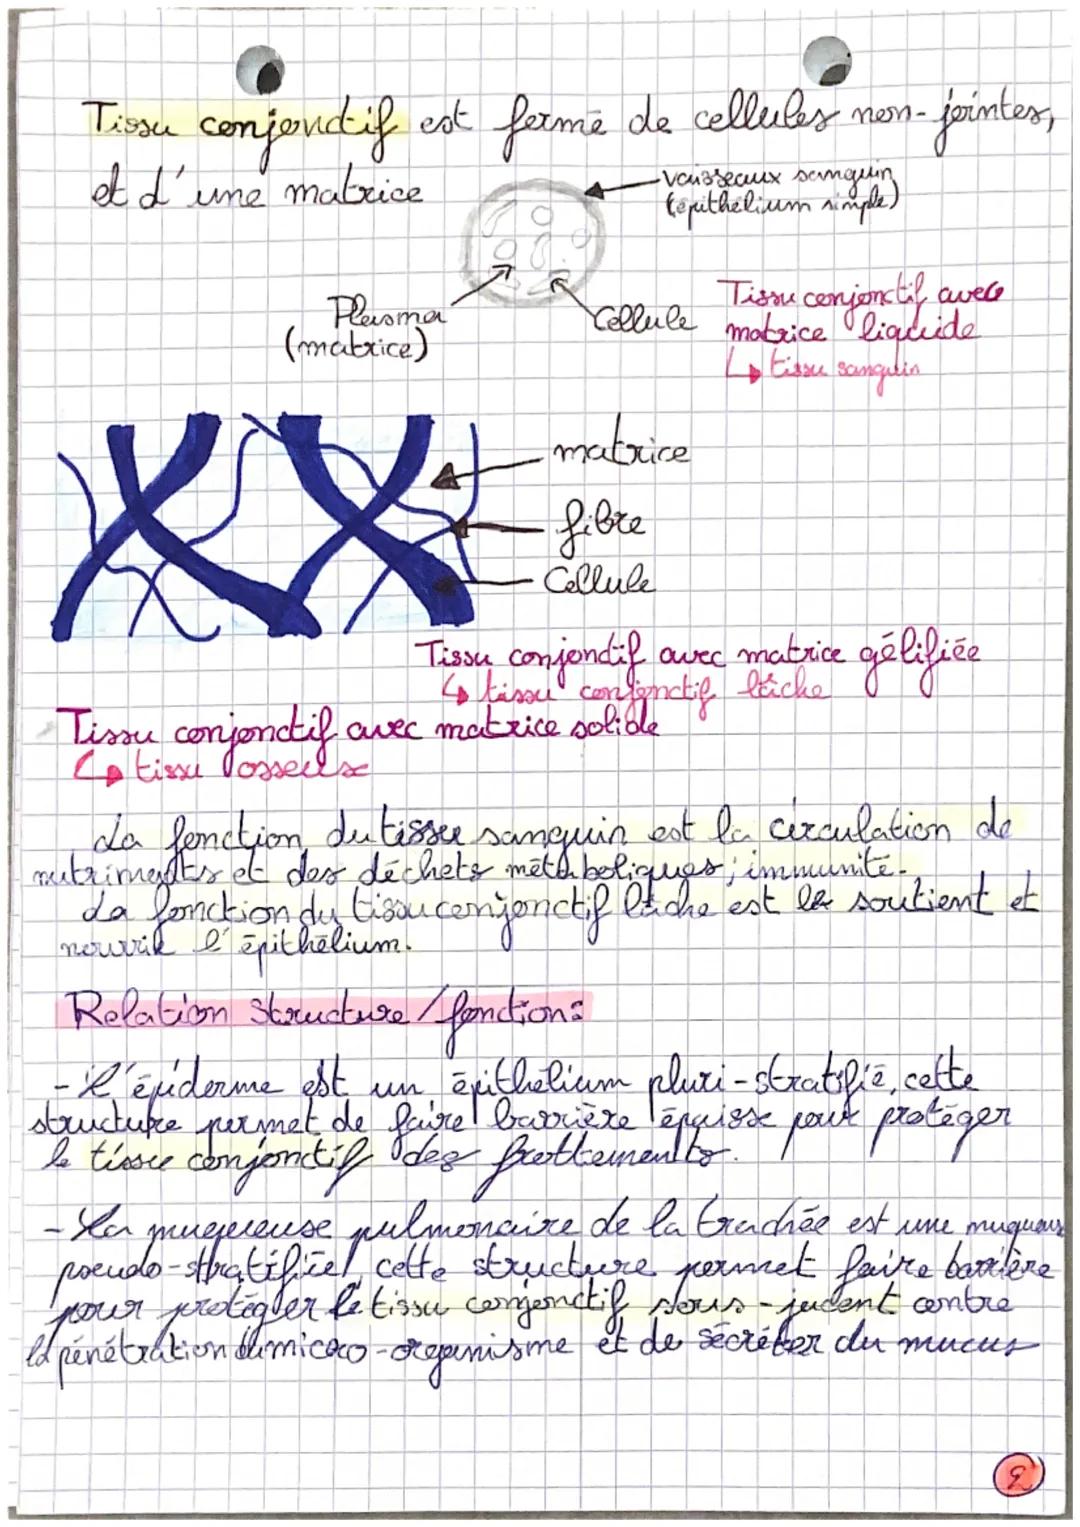 Tissu conjonctif est formé de cellules non-jointes,
et d'une matrice
vaisseaux sanguin
(épithélium simple)
Plasma
(matrice)
Cellule
Tissu conjonctif avec
matrice liquide
↳ tissu sanguin
matrice
fibre
Cellule
Tissu conjonctif avec matrice gélifiée
↳ tissu conjonctif lâche
Tissu conjonctif avec matrice solide
↳ tissu osseux
La fonction du tissu sanguin est la circulation de
nutriments et des déchets métaboliques ; immunité.
La fonction du tissu conjonctif lâche est le soutient et
nourrir l'épithélium.
Relation structure / fonction :
- L'épiderme est un épithélium pluri-stratifié, cette
structure permet de faire barrière épaisse pour protéger
le tissu conjonctif des frottements.
- La muqueuse pulmonaire de la trachée est une muqueuse
pseudo-stratifiée, cette structure permet faire barrière
pour protéger le tissu conjonctif sous-jacent contre
la pénétration du micoro-organisme et de sécréter du mucus
2